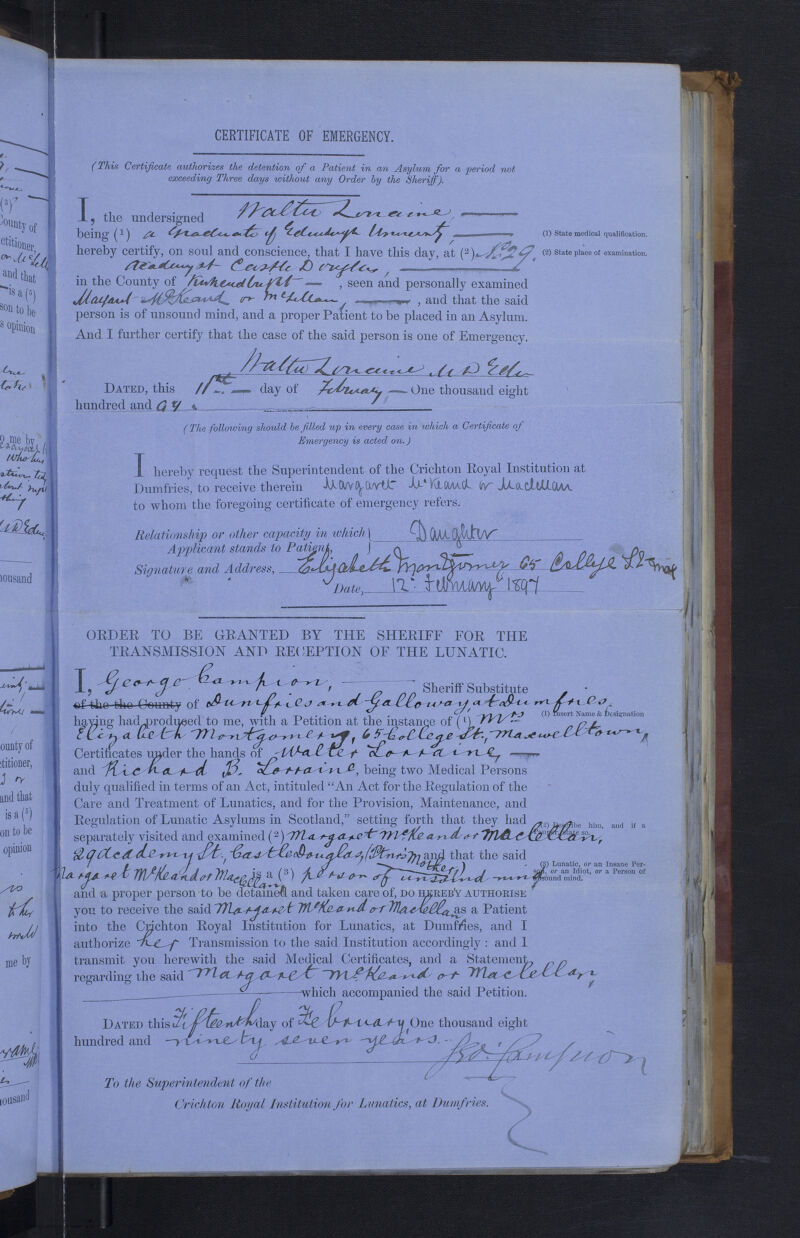 CERTIFICATE OF EMERGENCY.
(This Certificate authorizes the detention of a Patient in an Asylum for a period not
exceeding Three days without any Order by the Sheriff).
I, the undersigned Walter Lorraine,
being (1) a Graduate of Edinburgh University,
(1) State medical qualification.
hereby certify, on soul and conscience, that I have this day, at (2) No. 29,
(2) State place of examination.
Academy St Castle Douglas,
in the County of Kirkcudbright, seen and personally examined
Margaret McKeand or McLellan, and that the said
person is of unsound mind, and a proper Patient to be placed in an Asylum.
And I further certify that the case of the said person is one of Emergency.
Walter Lorraine M.D. Edin
DATED, this 11th day of February One thousand eight
hundred and 97.
(The following should be filled up in every case in which a Certificate of
Emergency is acted on.)
I hereby request the Superintendent of the Crichton Royal Institution at
Dumfries, to receive therein Margaret McKeand or Maclellan
to whom the foregoing certificate of emergency refers.
Relationship or other capacity in which
Applicant stands to Patient, } Daughter
Signature and Address, Elizabeth Montgomery 65 College St
Date, 12. February 1897
ORDER TO BE GRANTED BY THE SHERIFF FOR THE
TRANSMISSION AND RECEPTION OF THE LUNATIC.
I, George Campion, Sheriff Substitute
of the the County of Dumfries and Galloway at Dumfries,
having had produced to me, with a Petition at the instance of (1) Mrs
(1) Insert Name & Designation
Elizabeth Montgomery, 65 College St., Maxwelltown,
Certificates under the hands of Walter Lorraine,
and Richard B. Lorraine, being two Medical Persons
duly qualified in terms of an Act, intituled "An Act for the Regulation of the
Care and Treatment of Lunatics, and for the Provision, Maintenance, and
Regulation of Lunatic Asylums in Scotland," setting forth that they had
separately visited and examined (2) Margaret McKeand or Maclellan,
(2) Describe him, and if a
29 Academy St., Castle Douglas (Ptnrs Mother) and that the said
Margaret McKeand or Maclellan is a (3) person of unsound mind
(3) Lunatic, or an Insane Person, or an Idiot, or a Person of unsound mind.
and a proper person to be detained and taken care of, DO HEREBY AUTHORISE
you to receive the said Margaret McKeand or Maclellan as a Patient
into the Crichton Royal Institution for Lunatics, at Dumfries, and I
authorize her Transmission to the said Institution accordingly: and I
transmit you herewith the said Medical Certificates, and a Statement
regarding the said Margaret McKeand or Maclellan,
which accompanied the said Petition.
DATED this Fifteenth day of February One thousand eight
hundred and ninety seven years.
Geo: Campion
To the Superintendent of the
Crichton Royal Institution for Lunatics, at Dumfries.